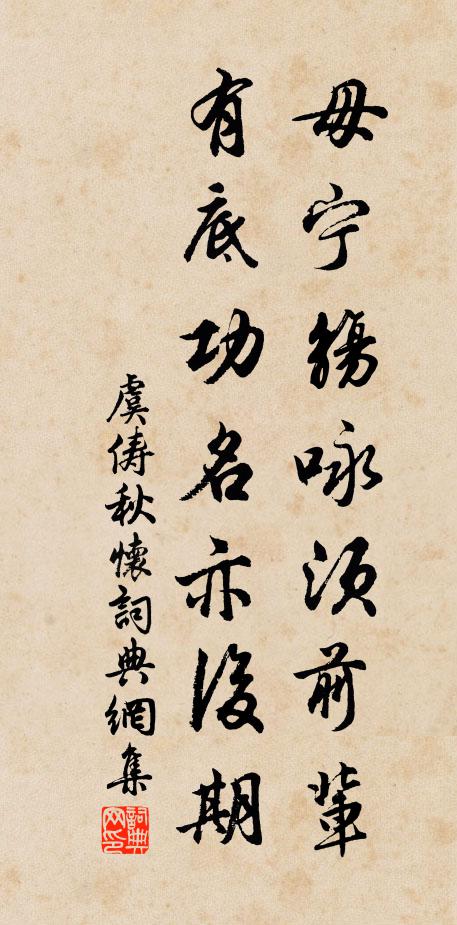 毋宁觞咏须前辈
有底功名亦後期
虞俦秋懷詞典網集
詞典网印